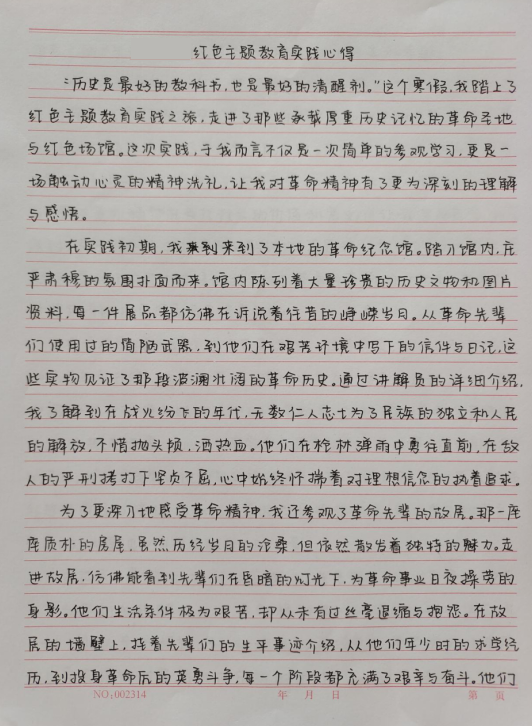 红色主题教育实践心得
“历史是最好的教科书，也是最好的清醒剂。”这个寒假，我踏上了
红色主题教育实践之旅，走进了那些承载厚重历史记忆的革命圣地
与红色场馆。这次实践，于我而言不仅是一次简单的参观学习，更是一
场触动心灵的精神洗礼，让我对革命精神有了更为深刻的理解
与感悟。
在实践初期，我来到了本地的革命纪念馆。踏入馆内，庄
严肃穆的氛围扑面而来。馆内陈列着大量珍贵的历史文物和图片
资料，每一件展品都仿佛在诉说着往昔的峥嵘岁月。从革命先辈
们使用过的简陋武器，到他们在艰苦环境中写下的信件与日记，这
些实物见证了那段波澜壮阔的革命历史。通过讲解员的详细介绍，
我了解到在战火纷飞的年代，无数仁人志士为了民族的独立和人民
的解放，不惜抛头颅，洒热血。他们在枪林弹雨中勇往直前，在敌
人的严刑拷打下坚贞不屈，心中始终怀揣着对理想信念的执着追求。
为了更深入地感受革命精神，我还参观了革命先辈的故居。那一座
座质朴的房屋，虽然历经岁月的沧桑，但依然散发着独特的魅力。走
进故居，仿佛能看到先辈们在昏暗的灯光下，为革命事业日夜操劳的
身影。他们生活条件极为艰苦，却从未有过丝毫退缩与抱怨。在故
居的墙壁上，挂着先辈们的生平事迹介绍，从他们年少时的求学经
历，到投身革命后的英勇斗争，每一个阶段都充满了艰辛与奋斗。他们
NO:002314 年 月 日 第 页